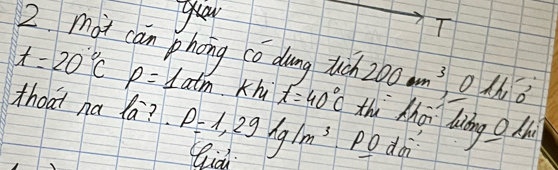 giải
T
2. Một căn phòng có dung tích 200 m³, O khí ở
t = 20°C P = 1 atm khi t = 40°C thì khối lượng O khí
thoát ra là?. D = 1,29 kg/m³. P O đổi
Giải